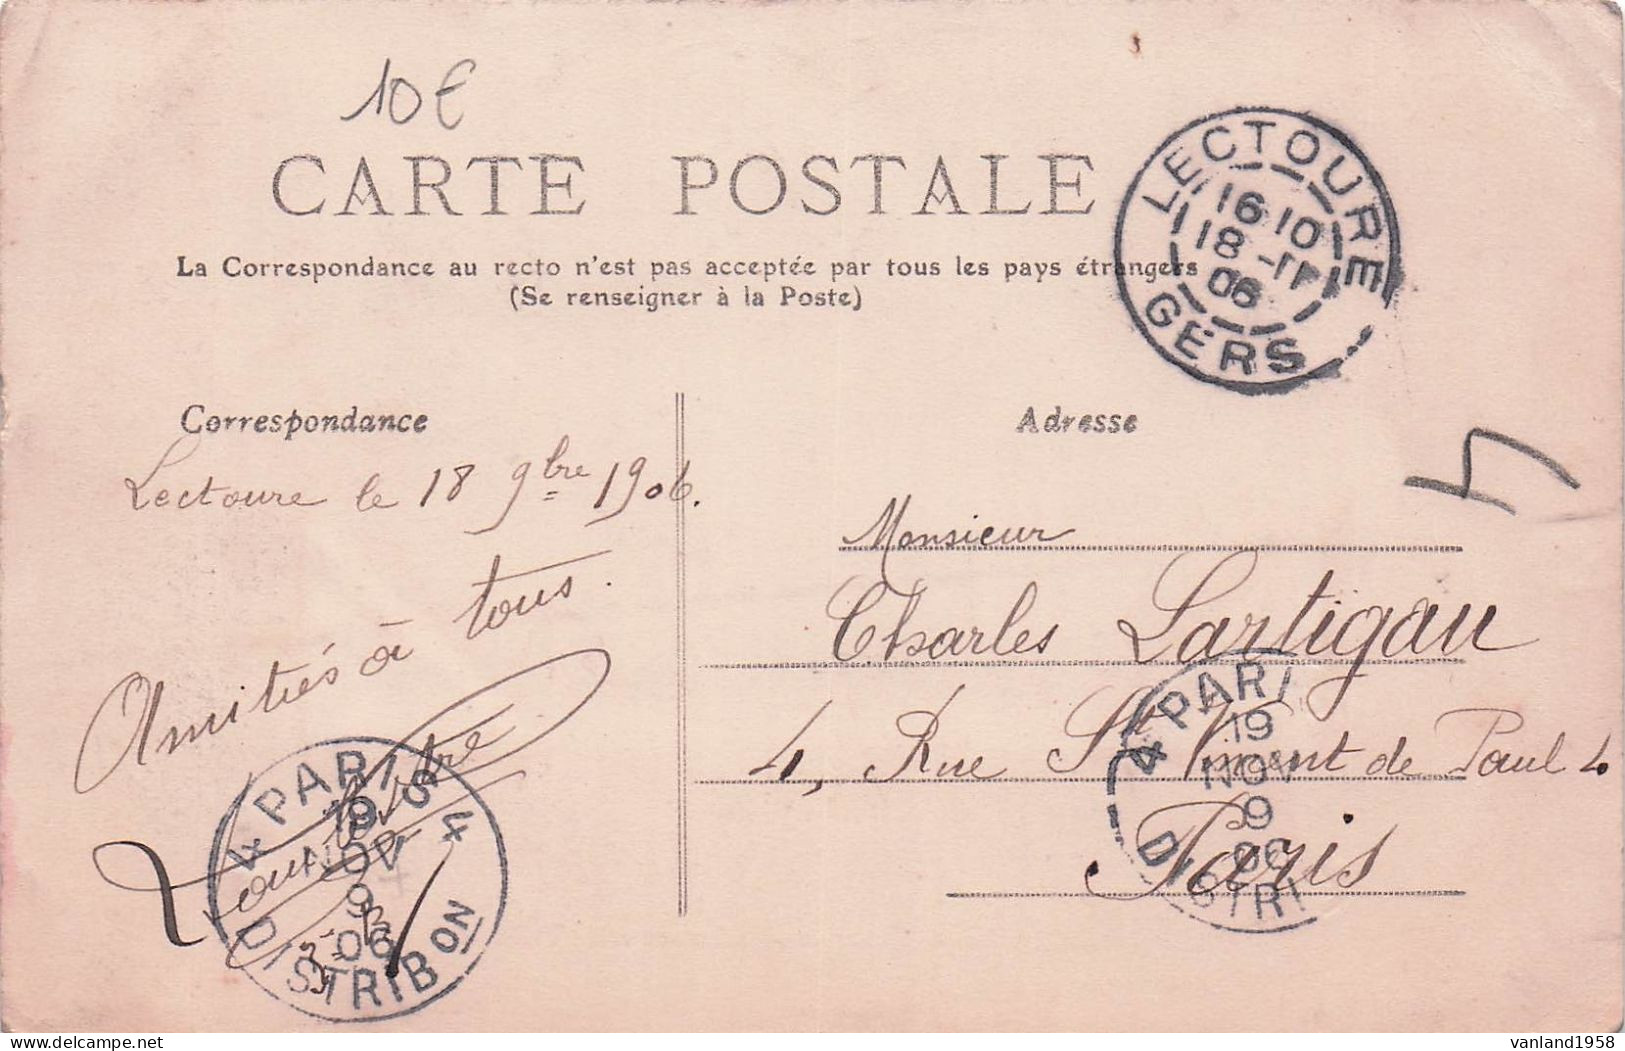 10€
CARTE POSTALE
La Correspondance au recto n'est pas acceptée par tous les pays étrangers
(Se renseigner à la Poste)
LECTOURE
16 10
18 -11
06
GERS
Correspondance
Adresse
Lectoure le 18 9bre 1906.
Amitiés à tous.
Monsieur
Charles Lartigau
4, Rue St Vincent de Paul 4
Paris
4 PARIS 4
19
NOV
9
06
DISTRIBON
4 PARI
19
NOV
9
06
DISTRI
delcampe.net
vanland1958